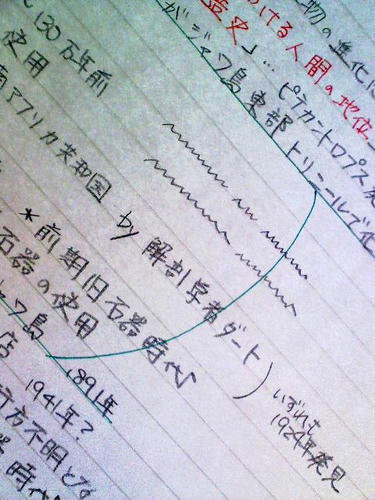 物の進化
ける人間の地位
造史」… ピテカントロプス発
がジャワ島東部トリニールで化
130万年前
使用
南アフリカ共和国 by 解剖学者ダート)
いずれも
1924年発見
*前期旧石器時代
石器の使用
ャワ島 1891年
店 1941年?
行方不明とな
器時代